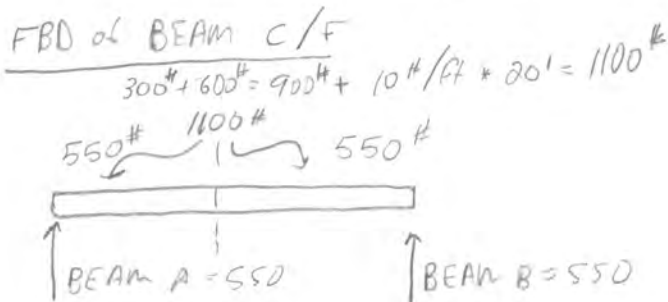 FBD of BEAM C/F
300# + 600# = 900# + 10#/ft * 20' = 1100#
1100#
550# 550#
BEAM A = 550 BEAM B = 550